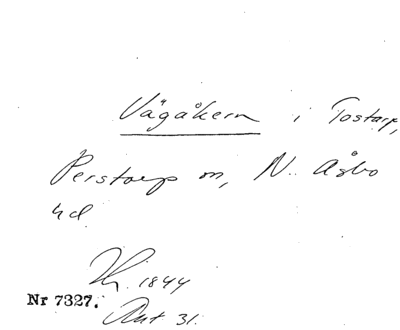 Vägåkern i Tostarp,
Perstorp sn, N. Åsbo
hd
1844
Nr 7327.
Akt 31.